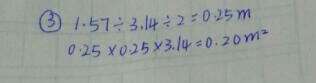 ③ 1.57÷3.14÷2=0.25m
0.25×0.25×3.14=0.20m²